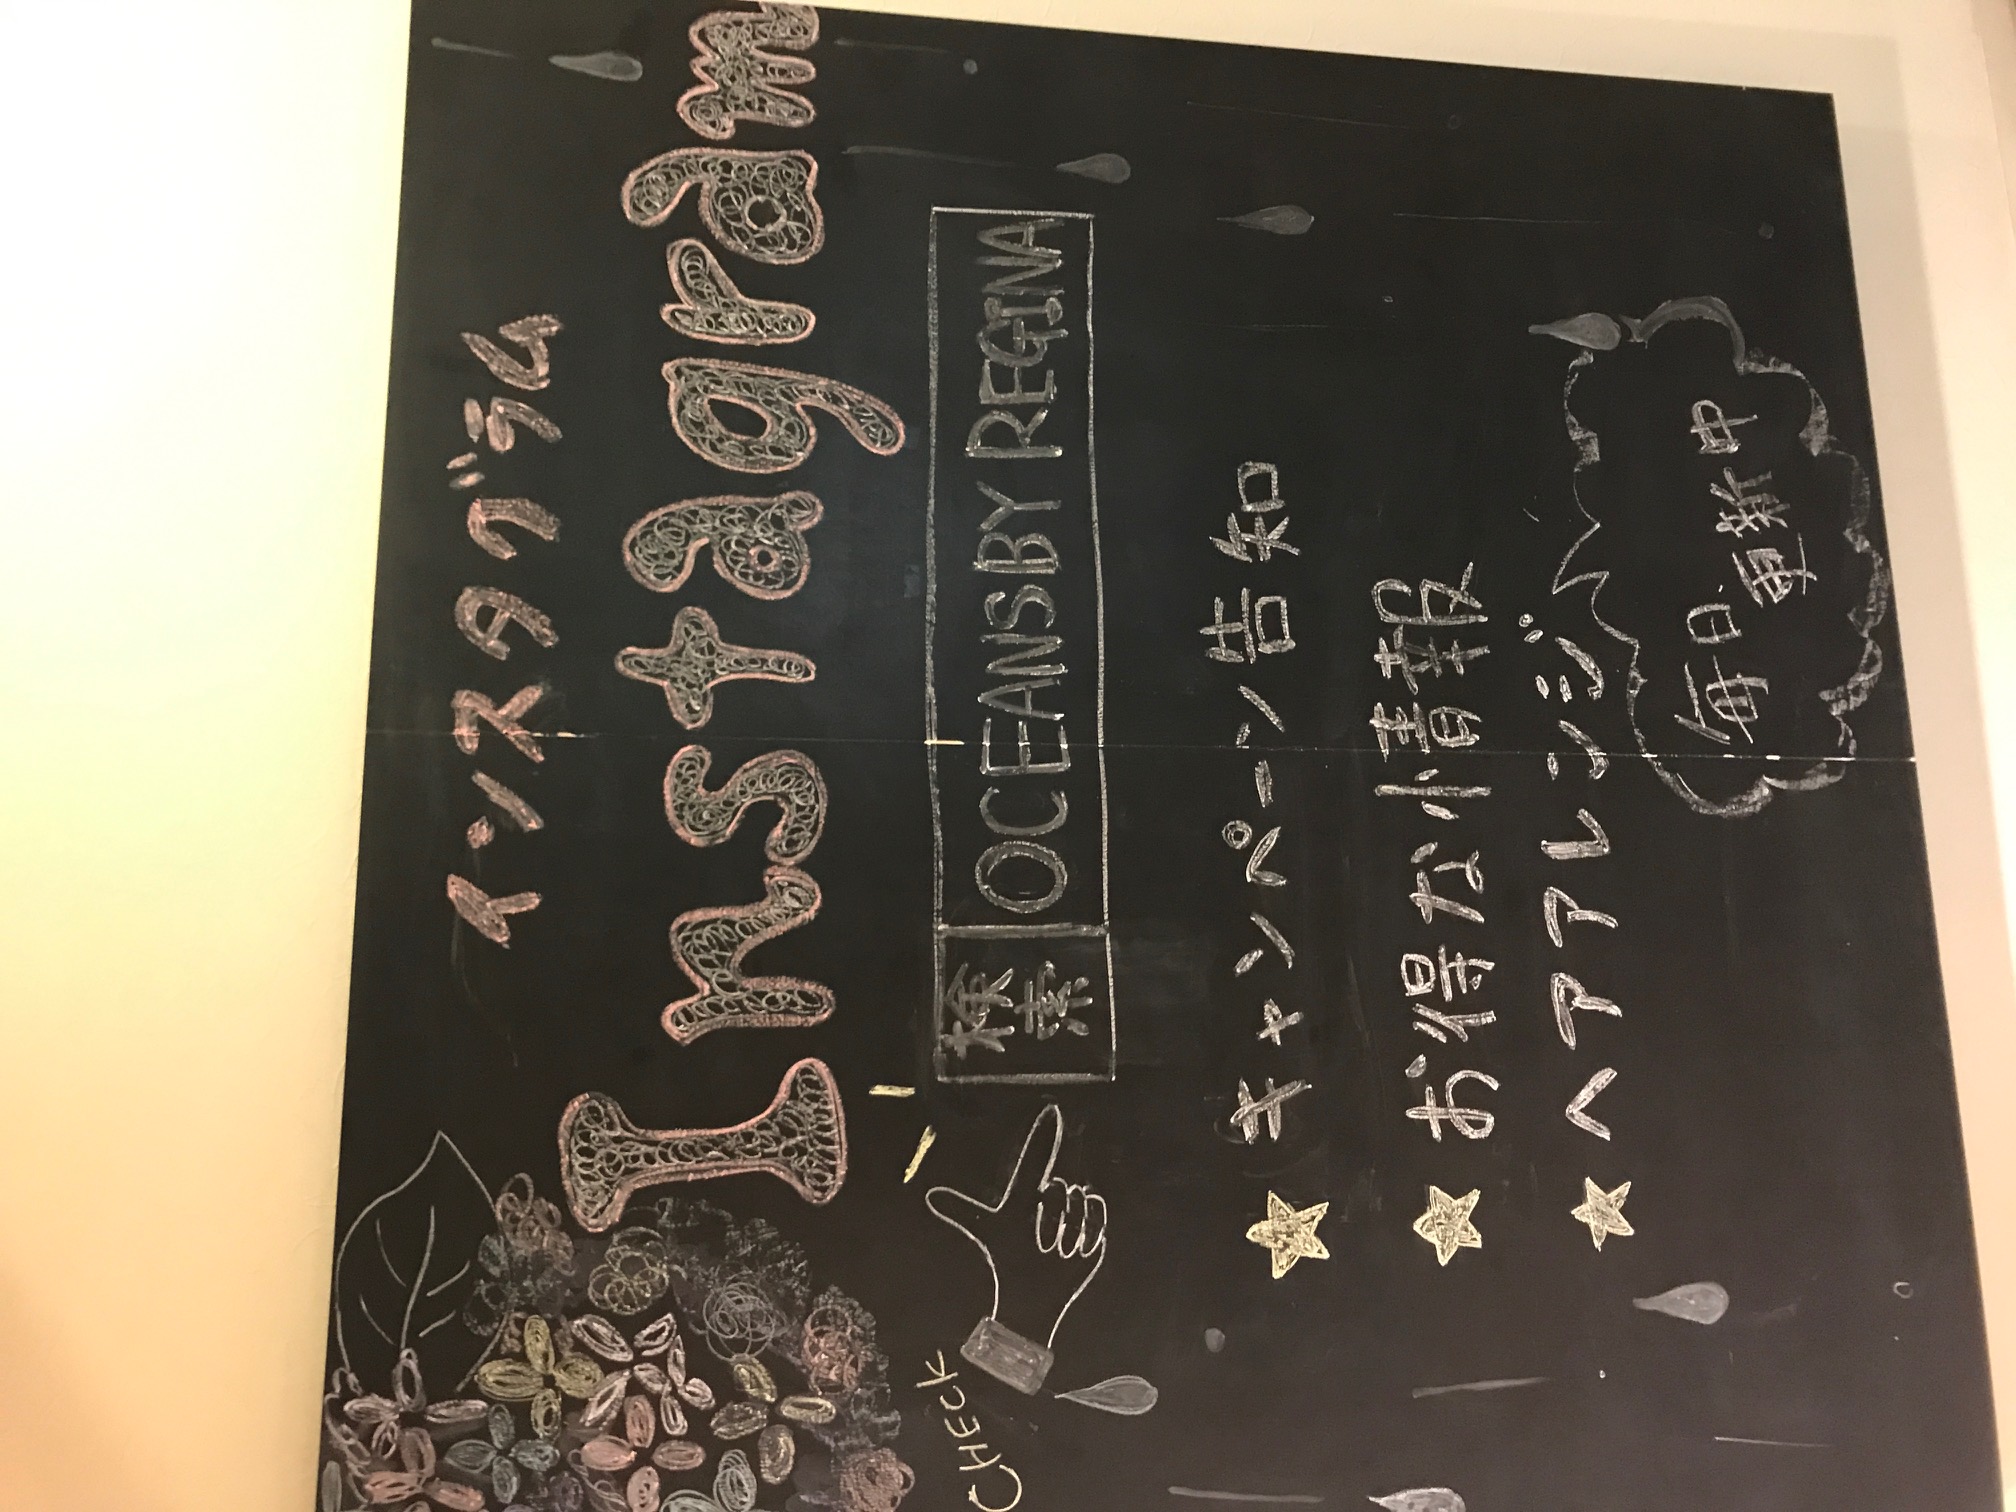 インスタグラム
Instagram
検索 OCEANSBY REGINA
CHECK
★キャンペーン告知
★お得な情報
★ヘアアレンジ
毎日
更新中